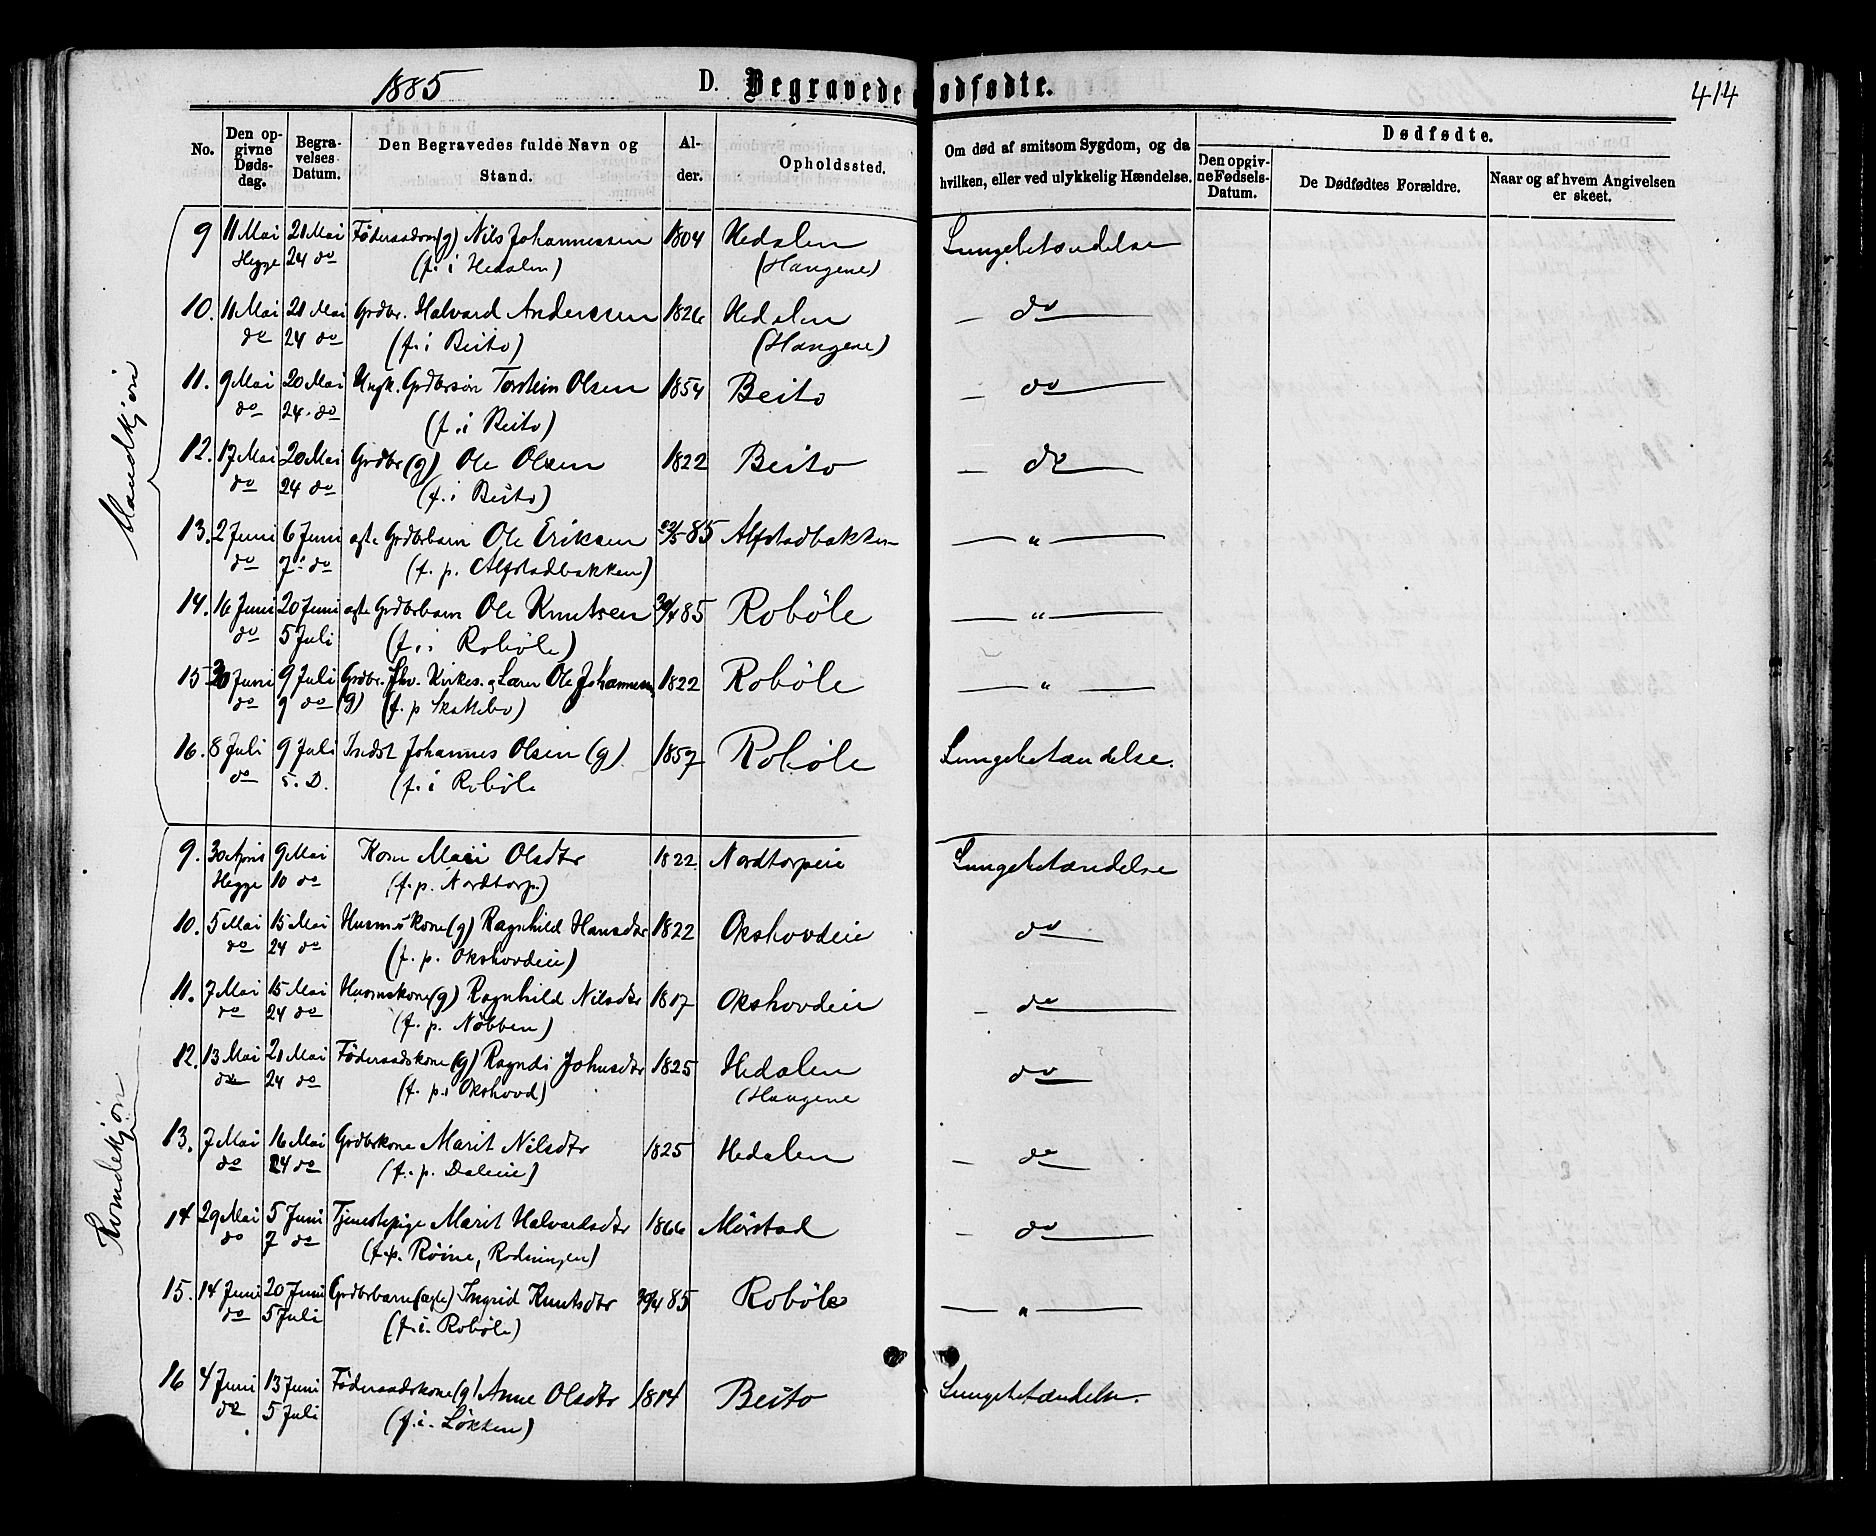 1885 D. Begravede og Dødfødte. 414
No. Den opgivne Dødsdag. Begravelses Datum. Den Begravedes fulde Navn og Stand. Alder. Opholdssted. Om død af smitsom Sygdom, og da hvilken, eller ved ulykkelig Hændelse. Dødfødte. Den opgivne Fødsels-Datum. De Dødfødtes Forældre. Naar og af hvem Angivelsen er skeet.
Mandkjøn
9 11 Mai 21 Mai Føderaadm (g) Nils Johannessen 1804 Hedalen Lungebetændelse
Hegge 24 do (f. i Hedalen) (Haugene)
10. 11 Mai 21 Mai Grdbr. Halvard Andersen 1826 Hedalen — do
do 24 do (f. i Beito) (Haugene)
11. 9 Mai 20 Mai Ungk. Grdbrsøn Torstein Olsen 1854 Beito — do
do 24 do (f. i Beito)
12. 17 Mai 20 Mai Grdbr (g) Ole Olsen 1822 Beito — do
do 24 do (f. i Beito)
13. 2 Juni 6 Juni ægte Grdbrbarn Ole Eriksen 85 Alfstadbakken — " —
do 7 do (f. p. Alfstadbakken)
14. 16 Juni 20 Juni ægte Grdbrbarn Ole Knutsen 30/4 85 Robøle — " —
do 5 Juli (f. i Robøle)
15 30 Juni 9 Juli Grdbr. Kirkes. og Lærer Ole Johannessen 1822 Robøle — " —
do 9 do (g) (f. p Skattebo)
16. 8 Juli 9 Juli Indst Johannes Olsen (g) 1857 Robøle Lungebetændelse.
do s. D. (f. i Robøle
Kvindekjøn
9. 30 April 9 Mai Kone Mari Olsdtr 1822 Nordtorpeie Lungebetændelse
Hegge 10 do (f. p. Nordtorp.)
10. 5 Mai 15 Mai Husmskone (g) Ragnhild Hansdtr 1822 Okshovdeie do
do 24 do (f. p. Okshovdeie)
11. 7 Mai 15 Mai Husmskone (g) Ragnhild Nilsdtr 1817 Okshovdeie — do
do 24 do (f. p. Nøbben)
12. 13 Mai 21 Mai Føderaadskone (g) Ragndi Johnsdtr 1825 Hedalen do
do 24 do (f. p. Okshovd) (Haugene
13. 7 Mai 16 Mai Grdbrkone Marit Nilsdtr 1825 Hedalen — do
do 24 do (f. p. Daleie)
14 29 Mai 5 Juni Tjenestepige Marit Halvardsdtr 1866 Mørstad — do
do 7 do (f. p. Røine, Rodningen)
15. 14 Juni 20 Juni Grdbrbarn (ægte) Ingrid Knutsdtr 30/4 85 Robøle — " —
do 5 Juli (f. i. Robøle)
16 4 Juni 13 Juni Føderaadskone (g) Anne Olsdtr 1814 Beito Lungebetændelse.
do 5 Juli (f. i. Løkken)